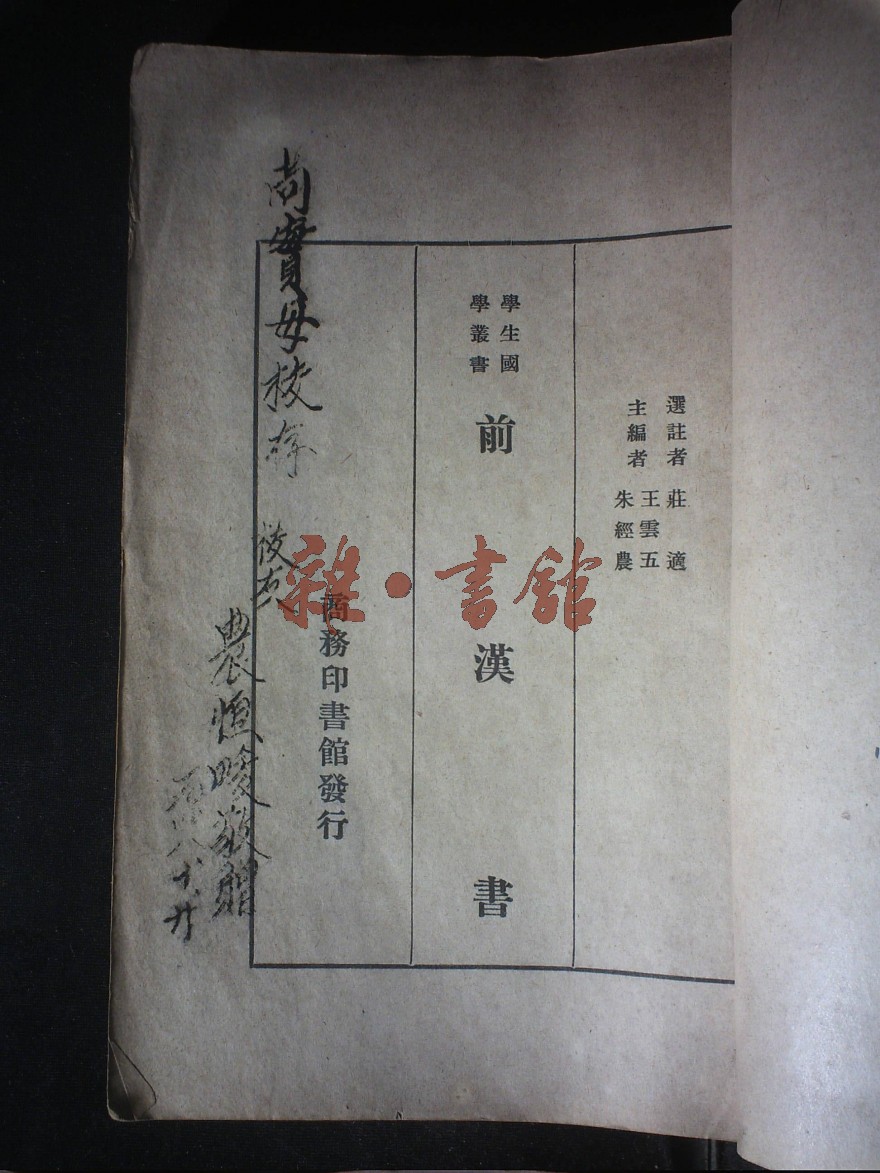 選註者 莊適
主編者 王雲五
朱經農
學生國
學叢書
前漢書
商務印書館發行
尚實母校存
校友
農恒暌敬贈
雜·書館